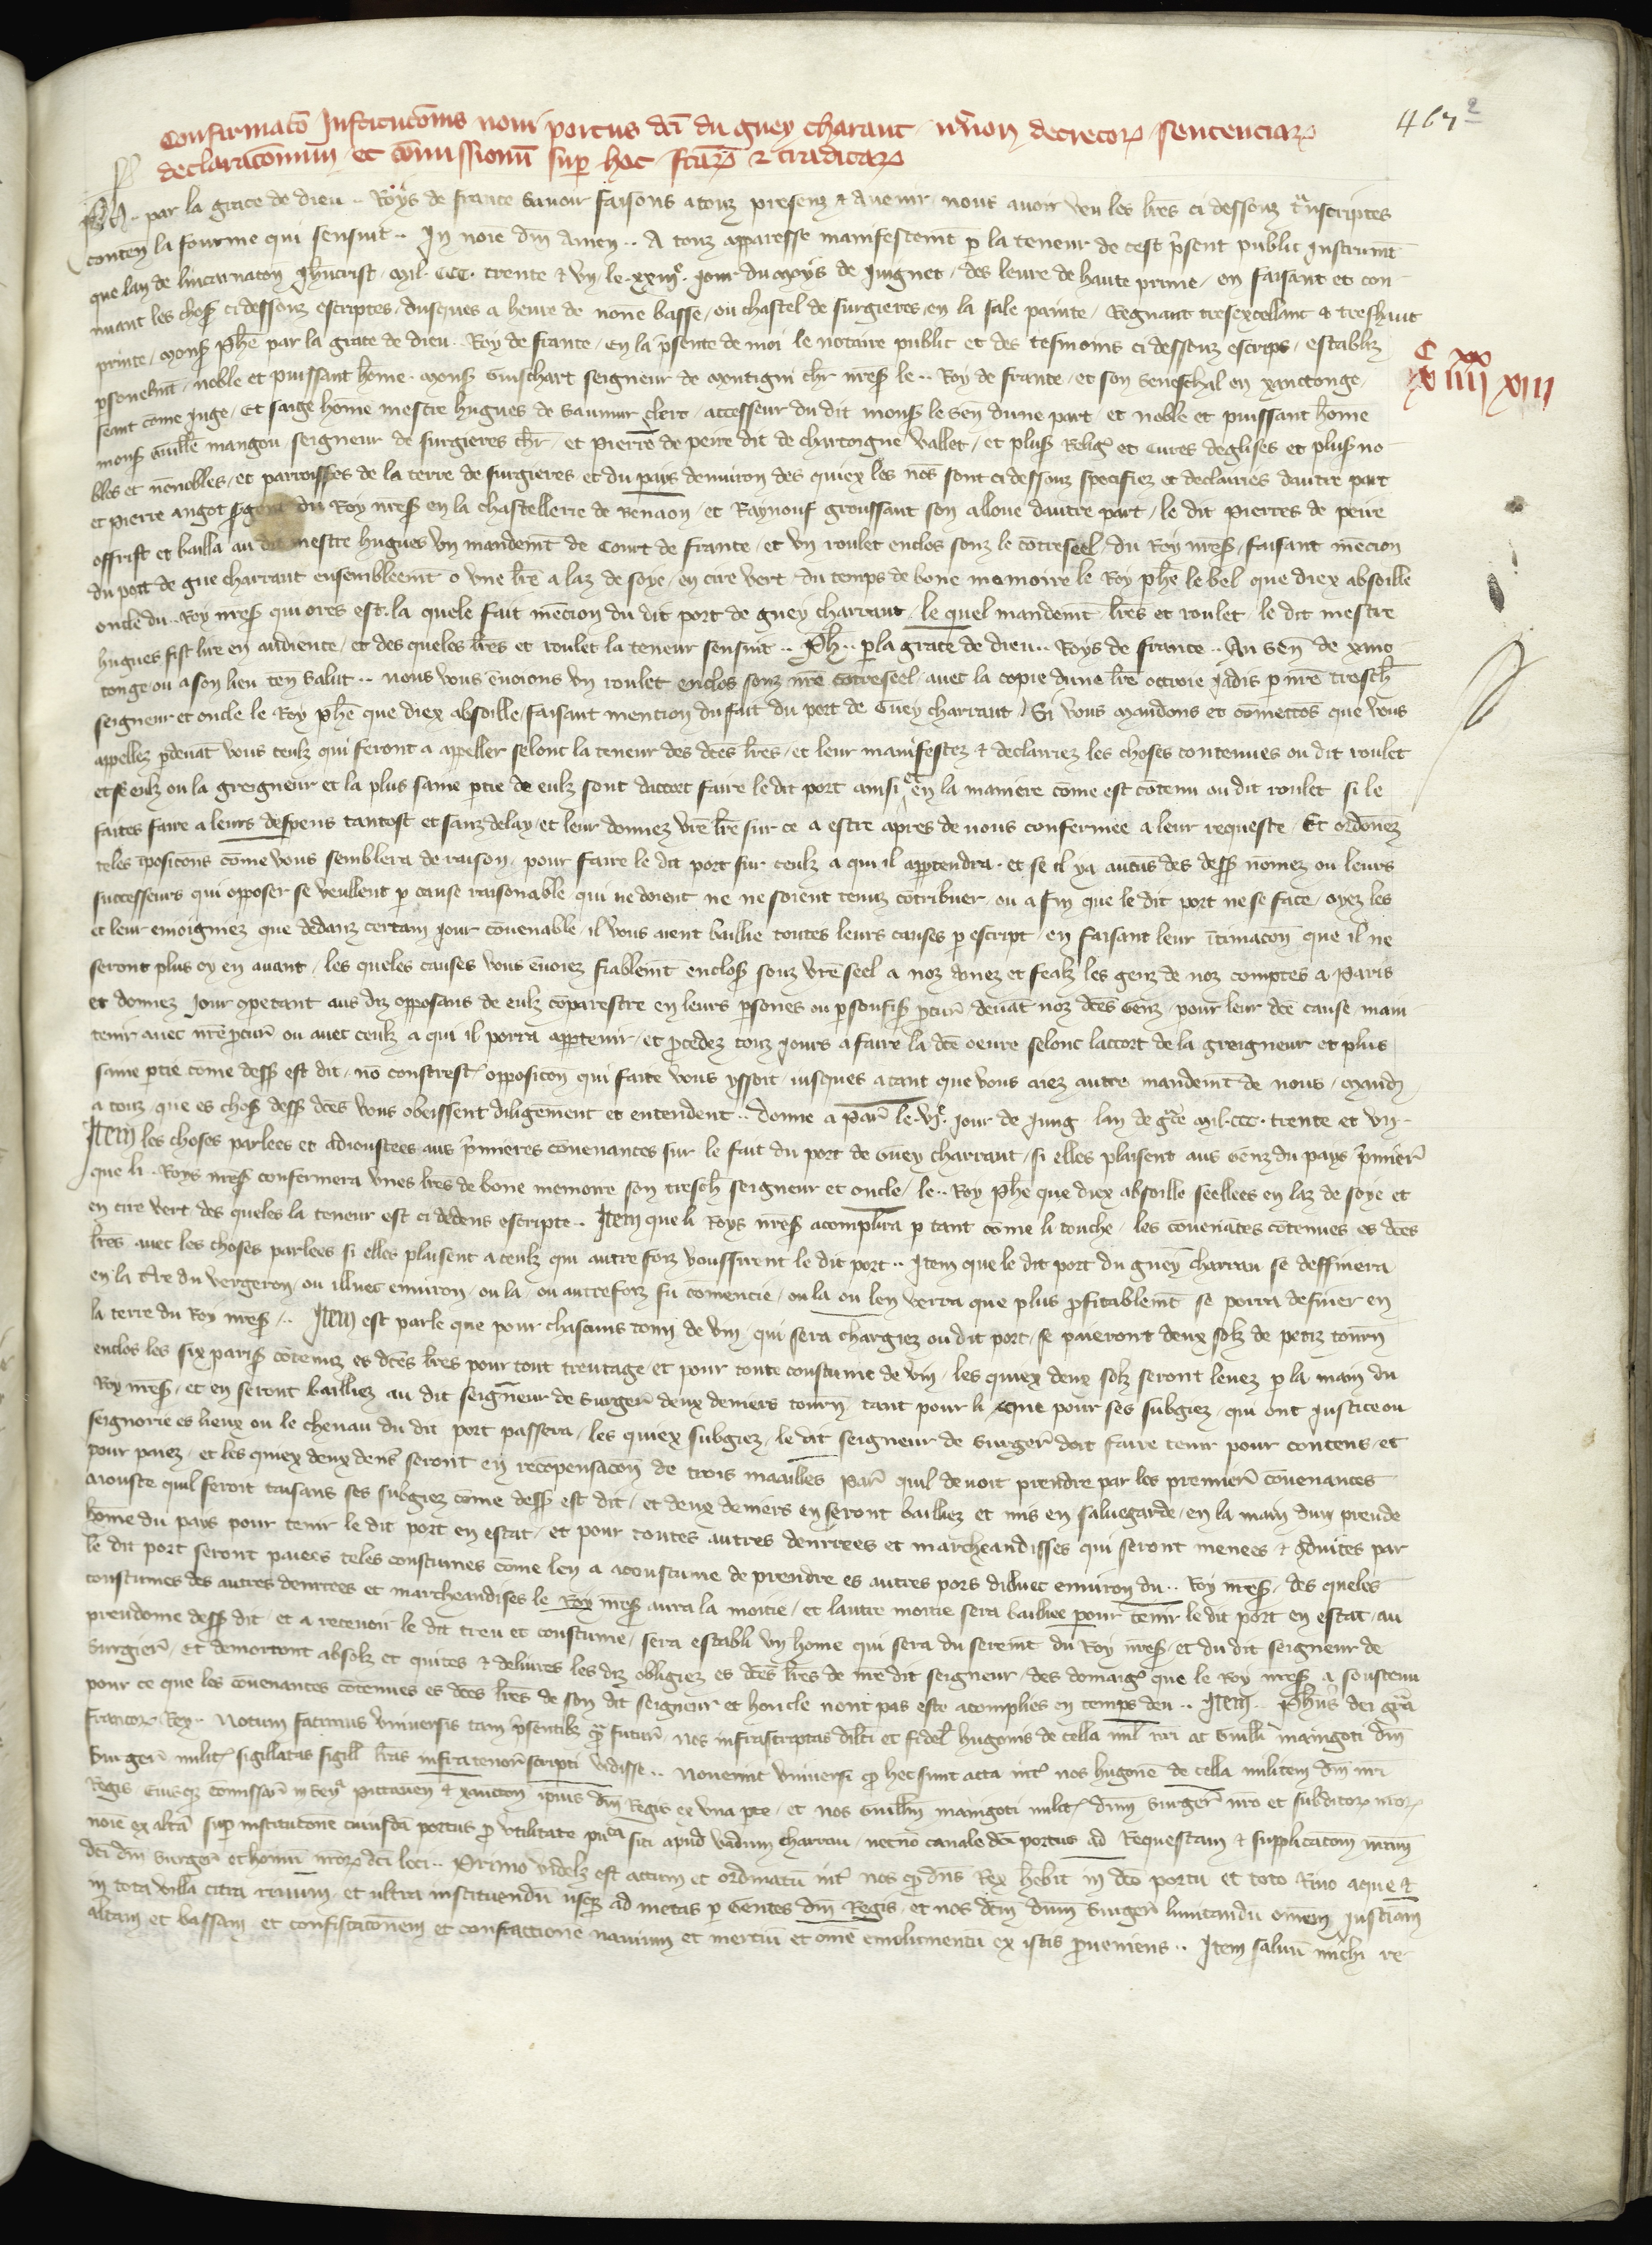 467
2
Confirmatō Institucōnis novi portus dc̄i du guey charaut n̄cnon decretoꝝ sentenciaꝝ
declaracōnum et cōmissionū suꝑ hoc factaꝝ & traditaꝝ
Ph .. par la grace de dieu .. Roys de france savoir faisons a touz presenz & avenir nous avoir veu les lr̄es ci dessouz tͣnscriptes
conten̄ la fourme qui sensuit .. In noīe dn̄i Amen .. A touz apparesse manifestemt̄ ꝑ la teneur de cest p̄sent public Instrumt̄
que lan de lincarnatōn Jh̄ucrist mil CCC trente & vij le xxiijͤ Jour du moys de Juignet des leure de haute prime en faisant et con
nuant les choses ci dessouz escriptes dusques a heure de nōne basse ou chastel de surgieres en la sale painte Regnant tresexcellant & treshaut
prince monsʳ Phē par la grace de dieu Roy de france En la p̄sence de moi le notaire public et des tesmoins ci dessouz escrips establiz
ꝑsonelmt̄ noble et puissant hōme monsʳ Guischart seigneur de montigni chr̄ nr̄es̄ le .. Roy de france et son Seneschal en xanctonge
seant cōme Juge Et saige hōme mestre hugues de saumur clerc accesseur du dit monsʳ le sen̄ dune part et noble et puissant hōme
monsʳ Guill̄e mangou seigneur de surgieres chr̄ et pierre de peire dit de chartoigne vallet et plusʳ Religˣ et Cures deglises et plusʳ no
bles et nōnobles et parroisses de la terre de surgieres et du pays denviron des quiex les nōs sont ci dessouz specifiez et declairies dautre part
et pierre angot s̄gent du Roy nr̄es̄ en la chastellerie de Benaon et Raynouf groussaut son alloue dautre part le dit pierres de peire
offrist et bailla au dit mestre hugues vn mandemt̄ de Court de france et vn roulet enclos souz le cōtreseel du Roy nr̄es̄ faisant mēcion
du port de gue charraut ensemblemt̄ o vne lr̄e a laz de soye en cire vert du temps de bone memoire le Roy phē le bel que diex absoille
oncle du .. Roy nr̄es̄ qui ores est la quele fait mēcion du dit port de guey charraut le quel mandemt̄ lr̄es et roulet le dit mestre
hugues fist lire en audience et des queles lr̄es et roulet la teneur sensuit .. Ph .. ꝑ la grace de dieu .. Roys de france .. Au sen̄ de xanc
tonge ou a son lieu ten̄ salut .. nous vous ēnvoions vn roulet enclos souz nr̄e cōtreseel avec la copie dune lr̄e octroie Jadis ꝑ nr̄e tresch̄
seigneur et oncle le Roy phē que diex absoille faisant mencion du fait du port de Guey charraut Si vous mandons et cōmettōs que vous
appellez ꝑ devāt vous ceulz qui feront a appeller selonc la teneur des dc̄es lr̄es et leur manifestez & declairiez les choses contenues ou dit roulet
et se eulz ou la greigneur et la plus saine ꝑtie de eulz sont daccort faire le dit port ainsi et en la maniere cōme est cōtenu ou dit roulet si le
faites faire a leurs despens tantost et sanz delay et leur donnez vr̄e lr̄e sur ce a estre apres de nous confermee a leur requeste Et ordōnez
teles īposicōns cōme vous semblera de raison pour faire le dit port sur ceulz a qui il appartendra et se il ya aucūs des dessʳ nōmez ou leurs
successeurs qui opposer se veullent ꝑ cause raisonable qui ne doient ne ne soient tenuz cōtribuer ou a fin que le dit port ne se face oyez les
et leur enioigniez que dedanz certain Jour cōvenable il vous aient baillie toutes leurs causes ꝑ escript en faisant leur ītimacōn que il ne
seront plus oy en avant les queles causes vous ēnvoiez fiablemt̄ enclosʳ souz vr̄e seel a noz amez et fealz les genz de noz comptes a Paris
et donnez Jour cōpetant aus diz opposans de eulz cōparestre en leurs ꝑsones ou ꝑ soufisʳ ꝓcur̄ devāt noz dc̄es Genz pour leur dc̄e cause main
tenir avec nr̄e ꝓcur̄ ou avec ceulz a qui il porra appartenir et ꝓcedez touz Jours a faire la dc̄e oevre selonc laccort de la greigneur et plus
saine ꝑtie cōme dessʳ est dit nō constrestʳ opposicōn qui faite vous yssoit iusques a tant que vous aiez autre mandemt̄ de nous Mandʳ
a touz que es chosʳ dessʳ dc̄es vous obeissent diligemment et entendent .. donne a par̄ le vjͤ Jour de Jung lan de gͣce mil CCC trente et vij
Item les choses parlees et adioustees aus p̄mieres cōvenances sur le fait du port de Guey charraut si elles plaisent aus Genz du pays p̄mier̄
que li .. Roys nr̄es̄ confermera vnes lr̄es de bone memoire son tresch̄ seigneur et oncle le .. Roy phē que diex absoille seellees en laz de soye et
en cire vert des queles la teneur est ci dedens escripte .. Item que li Roys nr̄es̄ acomplira ꝑ tant cōme li touche les cōvenāces cōtenues es dc̄es
lr̄es avec les choses parlees si elles plaisent a ceulz qui autre foiz voussirent le dit port .. Item que le dit port du guey charrau se deffinera
en la t̄re du vergeron ou illuec environ ou la ou autrefoiz fu cōmencie ou la ou len verra que plus ꝓfitablemt̄ se porra definer en
la terre du Roy nr̄es̄ .. Item est parle que pour chascuns tonn̄ de vin qui sera chargiez ou dit port se paieront deux solz de petiz tourn̄
enclos les six parisʳ cōtenuz es dc̄es lr̄es pour tout treutage et pour toute coustume de vin les quiex deux solz seront levez ꝑ la main du
Roy nr̄es̄ et en seront bailliez au dit seigneur de surger̄ deux deniers tourn̄ tant pour li que pour ses subgiez qui ont Justice ou
seignorie es lieux ou le chenau du dit port passera les quiex subgiez le dit seigneur de surger̄ doit faire tenir pour contens et
pour paiez et les quiex deux den̄s seront en recōpensacōn de trois maailles par̄ quil devoit prendre par les premier̄ cōvenances
aiouste quil feroit taisans ses subgiez cōme dessʳ est dit et deux deniers en seront bailliez et mis en salvegarde en la main dun preude
hōme du pays pour tenir le dit port en estat et pour toutes autres denrrees et marcheandisses qui seront menees & ꝯduites par
le dit port seront paiees teles coustumes cōme len a acoustume de prendre es autres pors dilluec environ du .. Roy nr̄es̄ des queles
coustumes des autres denrrees et marcheandises le Roy nr̄es̄ aura la moitie et lautre moitie sera baillee pour tenir le dit port en estat au
preudome dessʳ dit et a recevoir le dit treu et coustume sera establi vn home qui sera du seremt̄ du Roy nr̄es̄ et du dit seigneur de
Surgier̄ Et demorront absolz et quites & delivres les diz obligiez es dc̄es lr̄es de nr̄e dit seigneur des domaigˣ que le Roy nr̄es̄ a soustenu
pour ce que les cōvenances cōtenues es dc̄es lr̄es de son dit seigneur et honcle nont pas este acomplies en temps deu .. Item .. Ph̄us dei gr̄a
francoꝝ Rex .. Notum facimus vniversis tam p̄sentibꝫ qͣm futur̄ nos infrascriptas dilc̄i et fidel̄ hugonis de cella mil̄ nr̄i ac Guill̄i maingoti dn̄i
Surger̄ militˢ sigillatas sigill̄ lr̄as infra tenor̄ scripti vidisse .. Noverint vniversi qͩ hec sunt acta intˢ nos hugonē de cella militem dn̄i nr̄i
Regis Eiusqꝫ cōmissar̄ in senͣ pictaven̄ & xancton̄ ip̄ius dn̄i Regis ex vna ꝑte et nos Guill̄m maingoti militˢ dn̄m Surger̄ nr̄o et subditoꝝ nr̄oꝝ
noīe ex altā suꝑ institutōne cuiusdā portus ꝓ vtilitate pu͞ca siti apud vadum charrau necnō canale dc̄i portus ad Requestam & supplicatōm nr̄am
dc̄i dn̄i Surger̄ et homīn nr̄oꝝ dc̄i loci .. Primo videlꝫ est actum et ordinatū intˢ nos qͩ dn̄s Rex h̄ebit in dc̄o portu et toto Rivo aque &
in tota villa citra rivum et ultra instituendū usqꝫ ad metas ꝑ Gentes dn̄i Regis et nos dc̄m dn̄m Surger̄ limitandū om̄em Justic̄iam
altam et bassam et confiscatōnem et confractionē navium et merciū et om̄e emolumentū ex istis ꝓveniens .. Item salvū michi re-
C XX
XV IIII XIII